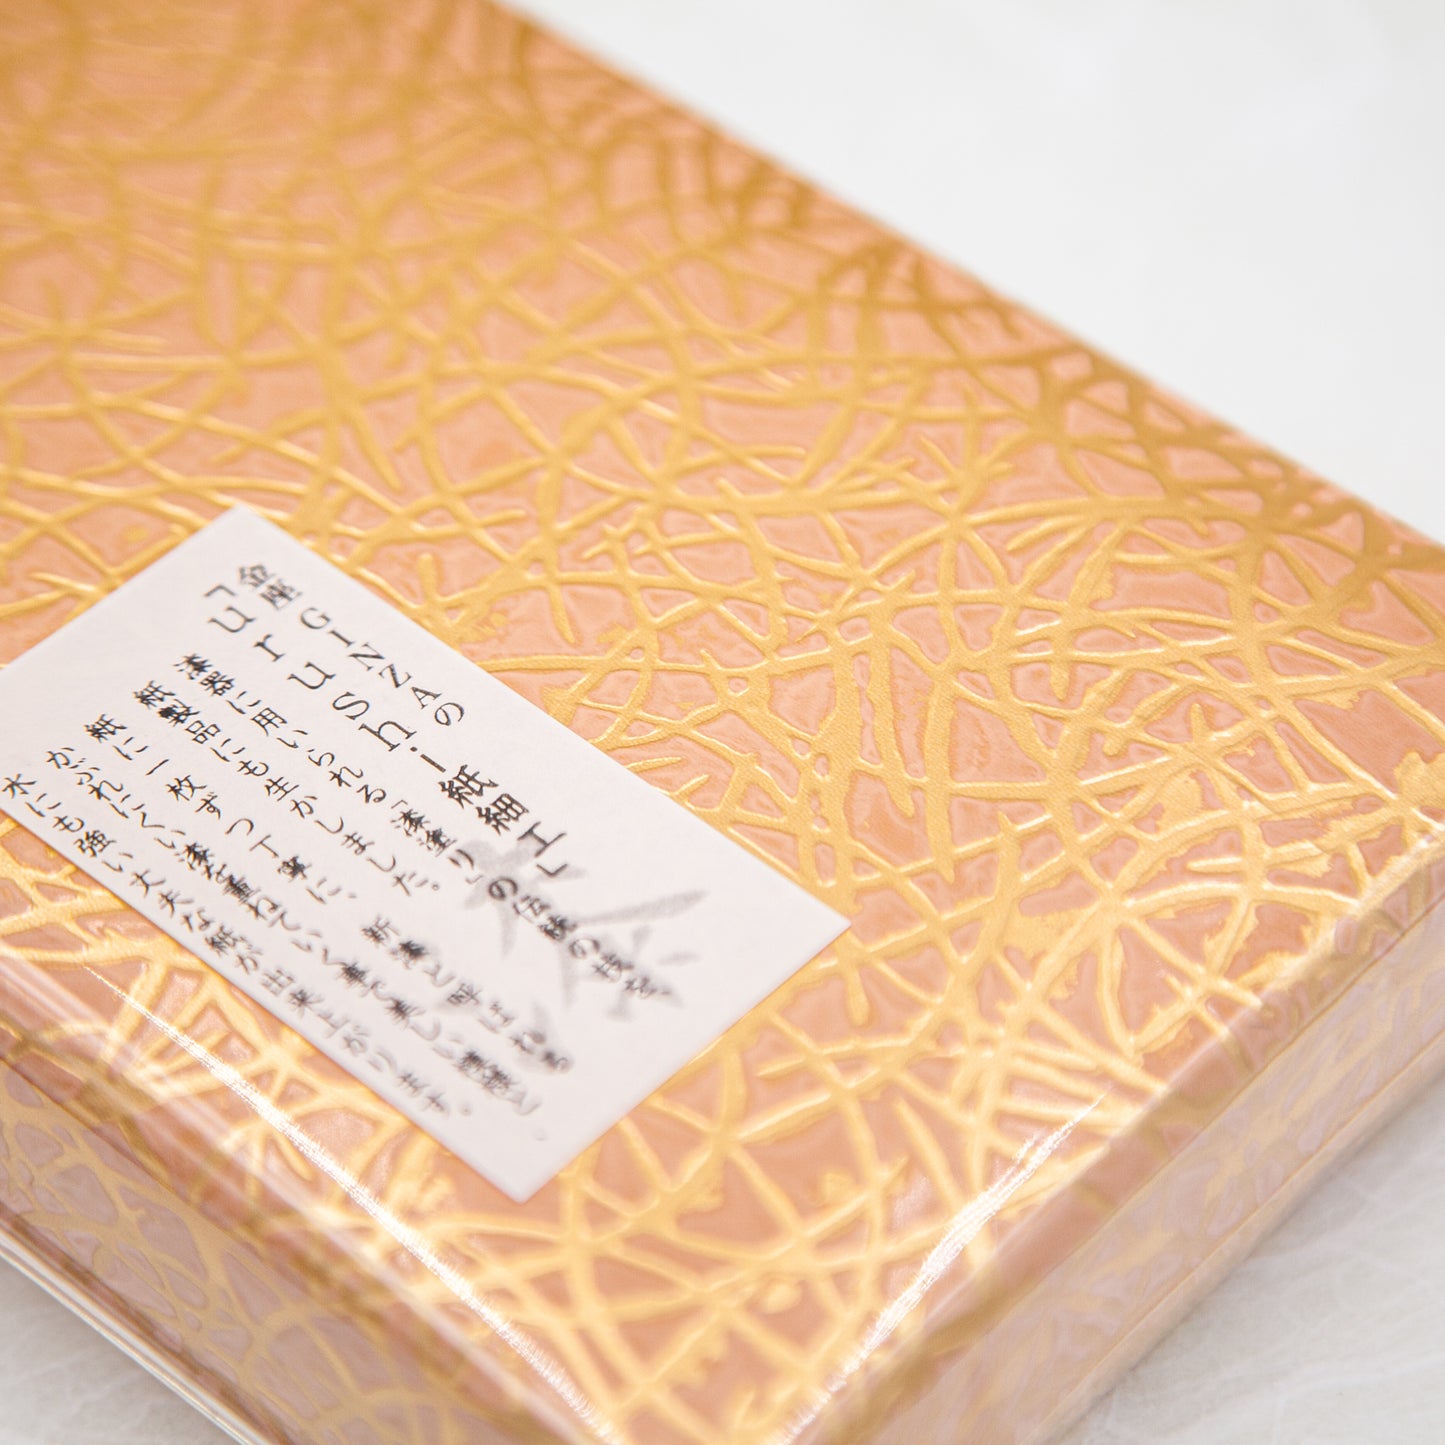 金座 GINZAの
「urushi−紙細工」
漆器に用いられる「漆塗り」の伝統の技を、
紙製品にも生かしました。
紙に一枚ずつ丁寧に、新漆と呼ばれる
かぶれにくい漆を重ねていく事で美しい
水にも強い丈夫な紙が出来上がります。